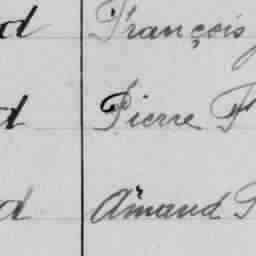 d François
d Pierre F
d Amand